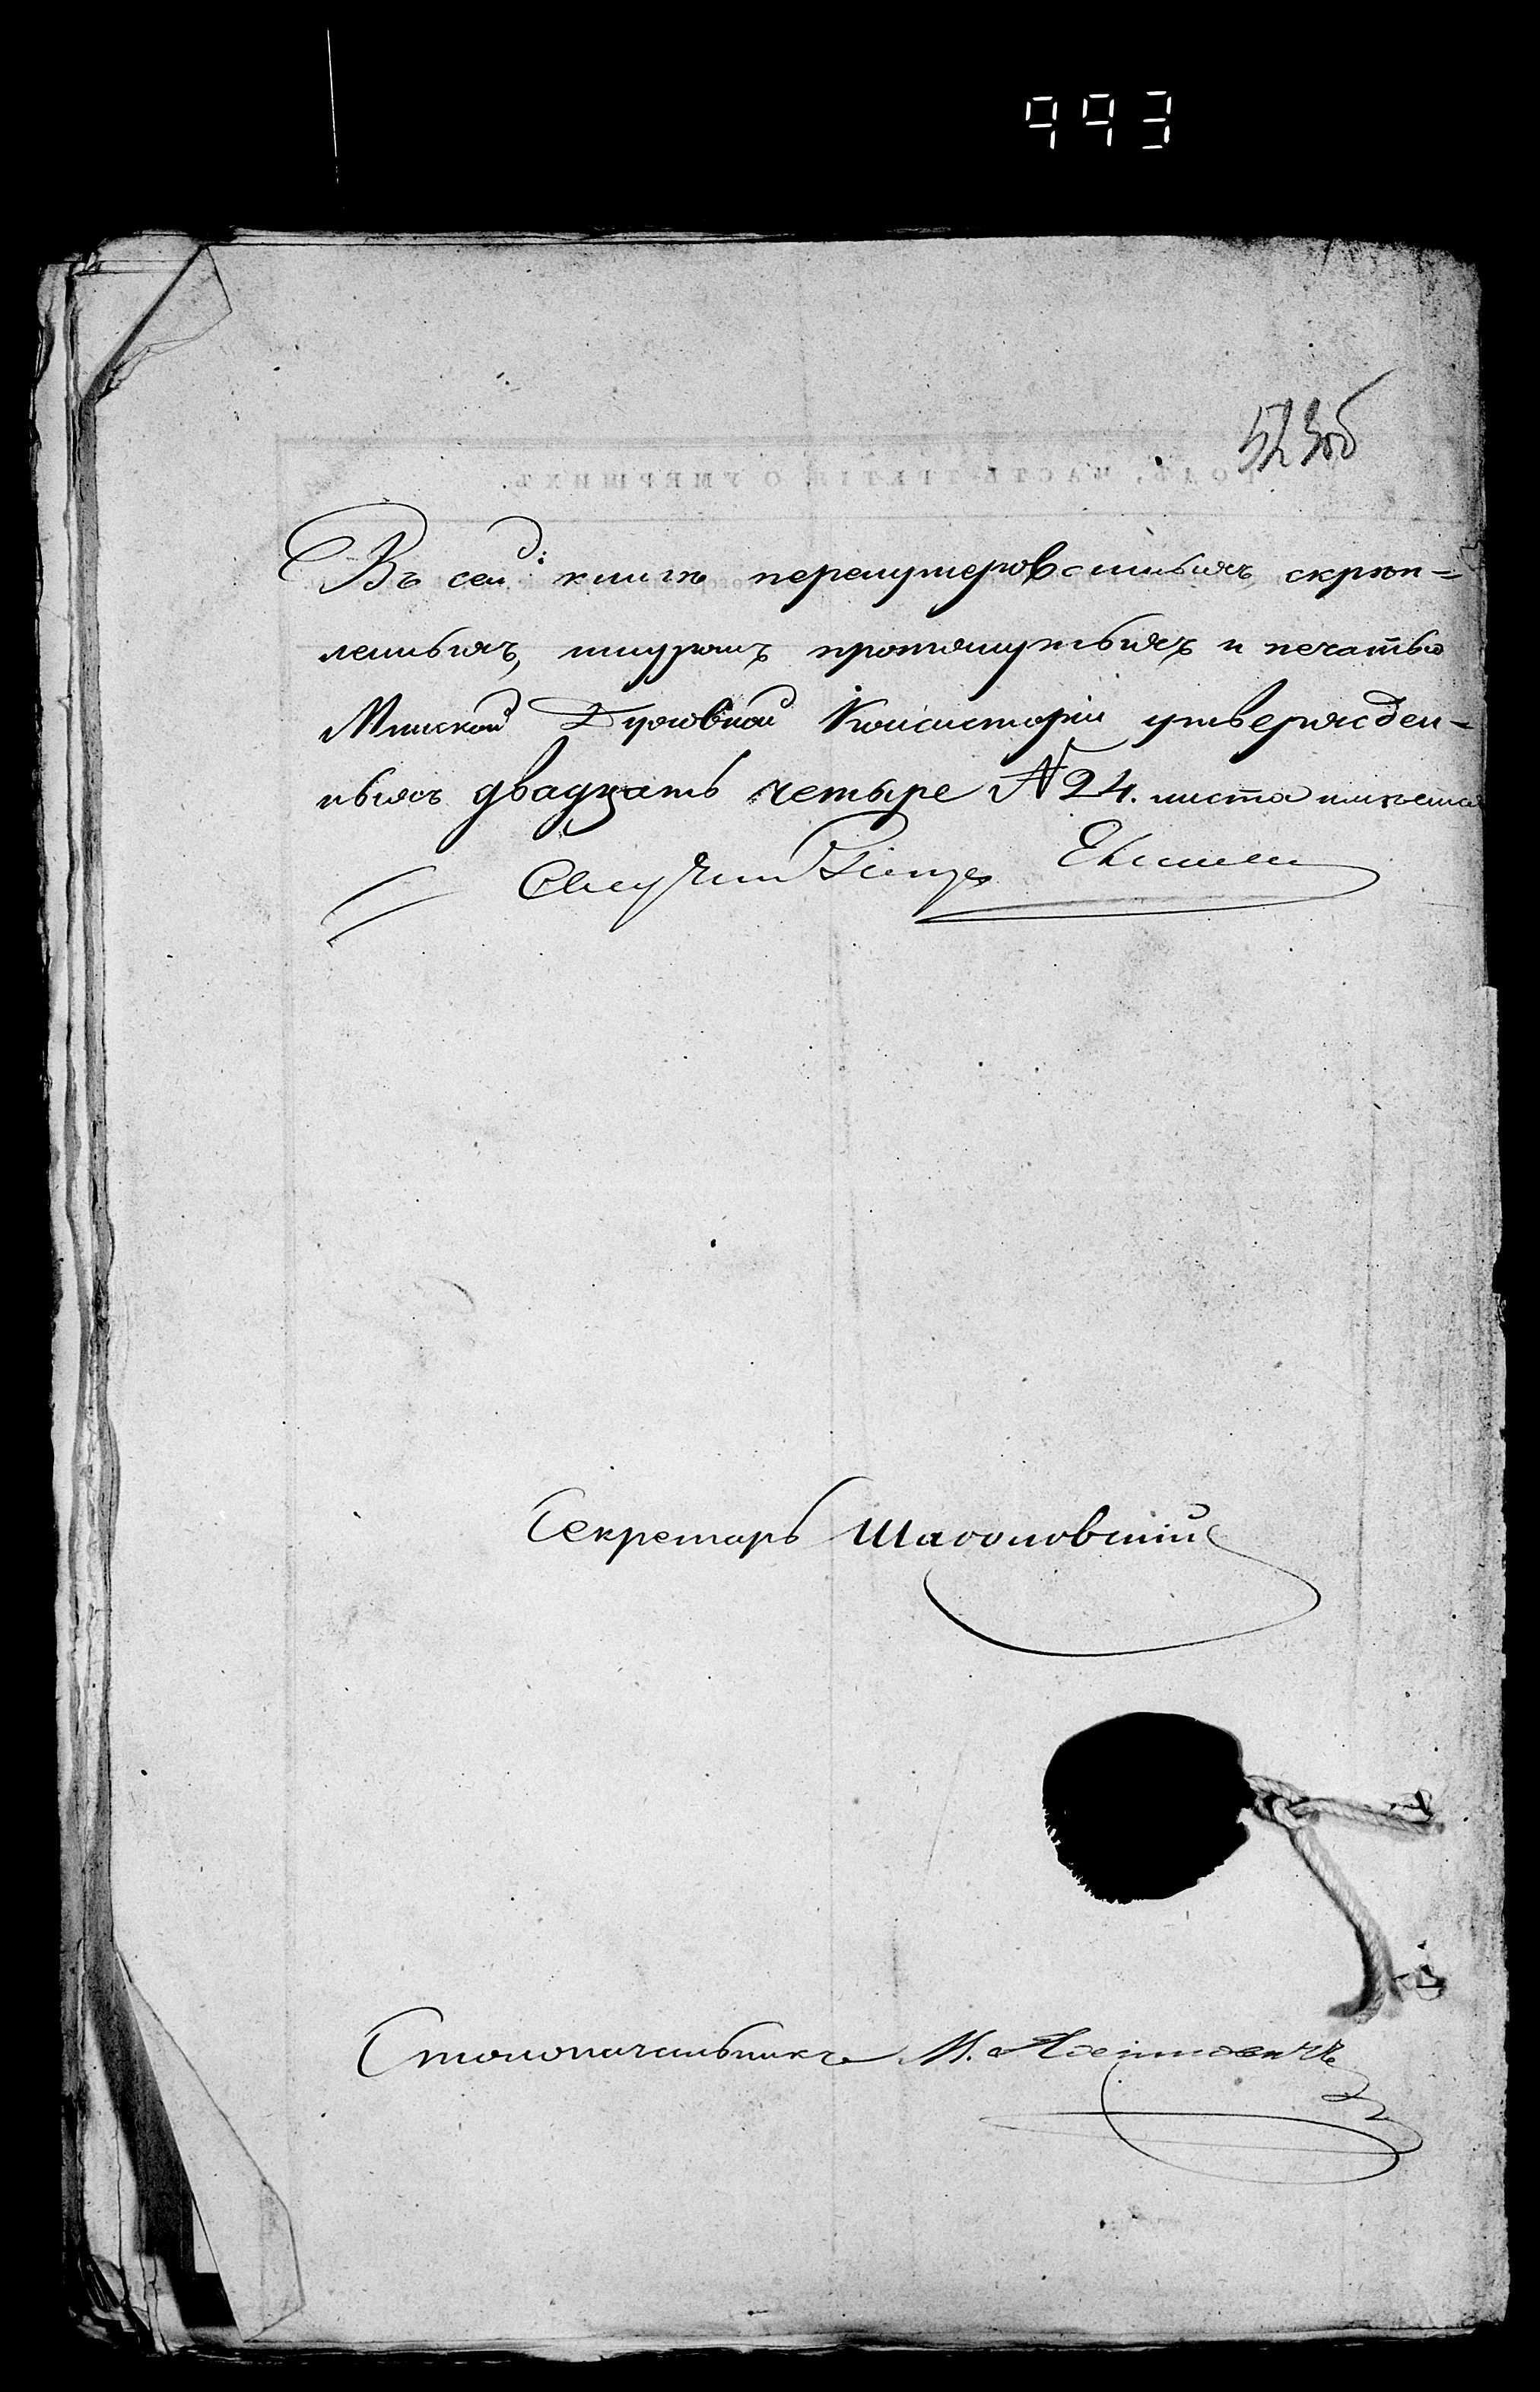 993
523об
Въ сей книгѣ перенумерованныхъ, скрѣп=
ленныхъ, шнуромъ протянутыхъ и печатью
Минской Духовной Консисторіи утвержден-
ныхъ двадцать четыре № 24. листа
Секретарь
Столоначальникъ М.